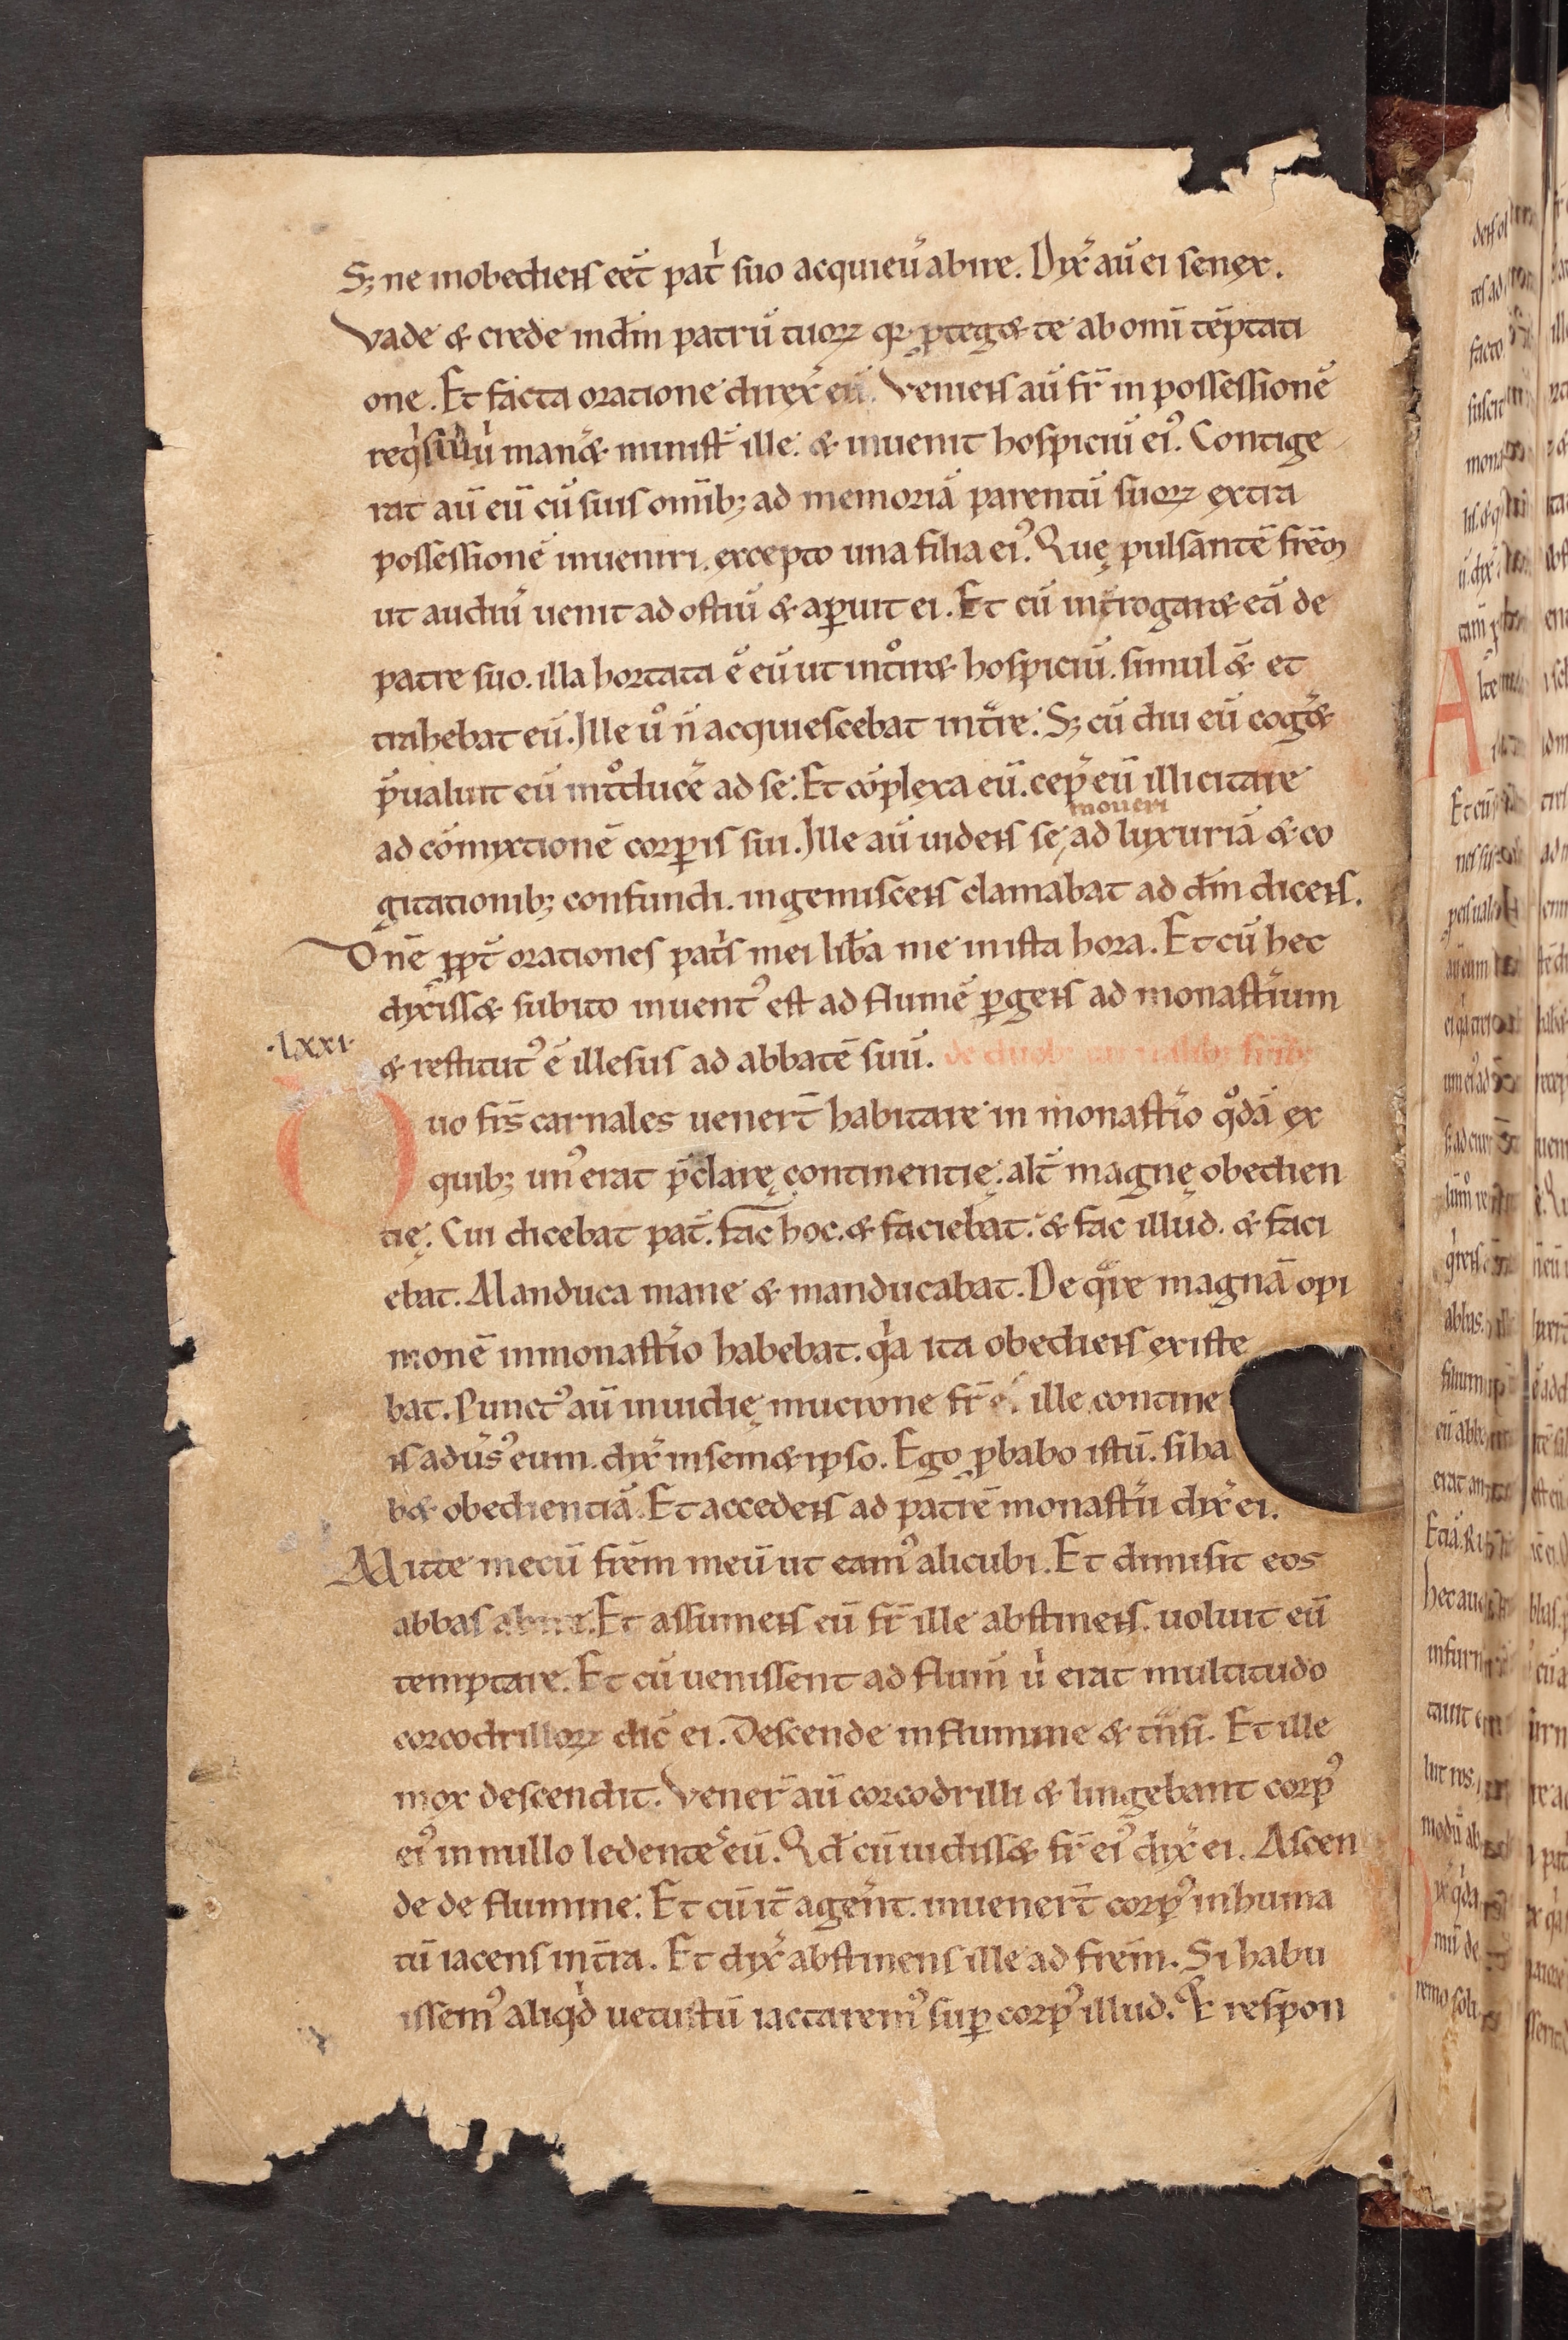 S; ne inobediens eēt patⁱ suo acquieu̓ abire. Dix̓ aū ei senex.
Vade & crede indn̄m patrū tuoꝝ qꝛ ꝓteg& te ab omī tēptati
one. Et facta oratione direx̓ eū. Veniens aū fr̄ in possessionē
reqⁱsiuⁱ uⁱ man̓& ministr̄ ille. & inuenit hospiciū eiꝰ. Contige
rat aū eū cū suis omībꝫ ad memoriā parentū suoꝝ extra
possessionē inueniri. excepto una filia eiꝰ. Quę pulsantē fr̄em
ut audiu̓ uenit ad ostiū & aꝑuit ei. Et cū int̓rogar& eā de
patre suo. illa hortata ē eū ut intͦir& hospiciū. simul & et
trahebat eū. Ille uͦ n̄ acquiescebat int̓re. S; cū diu eū cog̓&
p̄ualuit eū intͦduce̓ ad se. Et cōplexa eū. cep̓ eū illicitare
moueri
ad cōmyxtionē corꝑis sui. Ille aū uidens se, ad luxuriā & co
gitationibꝫ confundi. ingemiscens clamabat ad dn̄m dicens.
Dn̄e ꝓpt̄ orationes patⁱs mei lib̓a me in ista hora. Et cū hec
dix̓iss& subito inuentꝰ est ad flumē ꝑgens ad monast̓ium
.lxxi.
& restitutꝰ ē illesus ad abbatē suū. de duobꝫ
Duo fr̄s carnales uenert̄ habitare in monast̓io qͦdā ex
quibꝫ unꝰ erat p̄clarę continentię. alt̄ magnę obedien
tię. Cui dicebat pat̄. fac hoc. & faciebat. & fac illud. & faci
ebat. Manduca mane & manducabat. De qᵃre magnā opi
nionē in monast̓io habebat. qⁱa ita obediens existe
bat. Punctꝰ aū inuidię mucrone fr̄ eiꝰ. ille contine
ns adu̓sꝰ eum. dix̓ in sem&ipso. Ego ꝓbabo istū. si ha
b& obedientiā. Et accedens ad patrē monast̓ii dix̓ ei.
Mitte mecū fr̄em meū ut eamꝰ alicubi. Et dimisit eos
abbas abire. Et assumens eū fr̄ ille abstinens. uoluit eū
temptare. Et cū uenissent ad flum̄ uⁱ erat multitudo
corcodrilloꝝ dic̄ ei. Descende in flumine & tn̄si. Et ille
mox descendit. Vener̄ aū corcodrilli & lingebant corpꝰ
eiꝰ in nullo ledente̓ eū. Qd̄ cū uidiss& fr̄ eiꝰ dix̓ ei. Ascen
de de flumine. Et cū it̄ ager̄nt. inuenert̄ corpꝰ inhuma
tū iacens in t̄ra. Et dix̓ abstinens ille ad fr̄em. Si habu
issemꝰ aliqⁱd uetustū iactaremꝰ suꝑ corpꝰ illud. Et respon